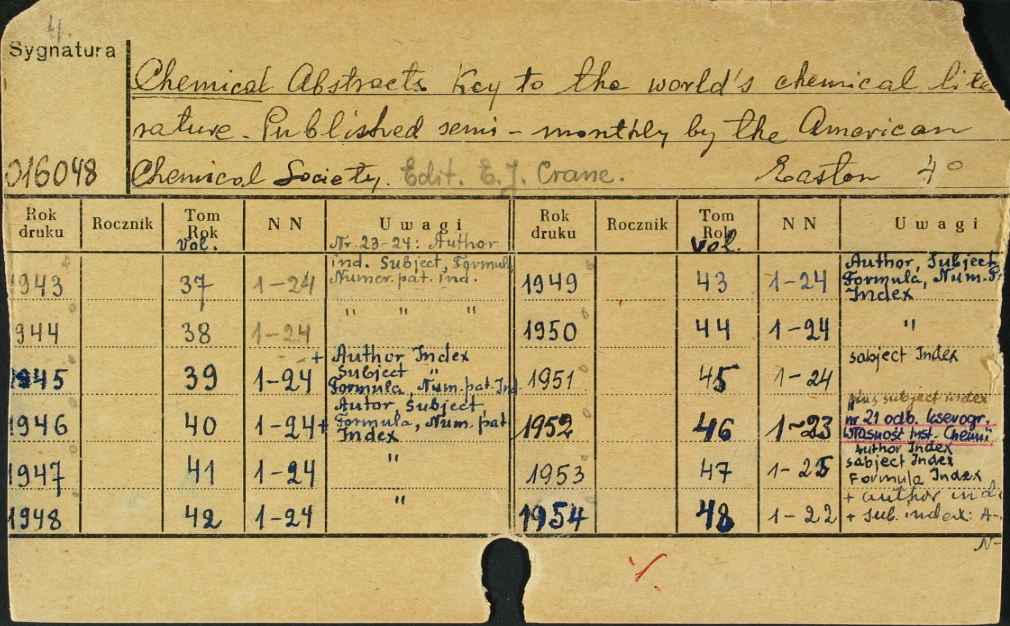 4.
Sygnatura
Chemical Abstracts Key to the world's chemical lite
rature. Published semi-monthly by the American
016048 Chemical Society. Edit. E. J. Crane. Easton 4°
Rok druku Rocznik Tom Rok vol. N N Uwagi Rok druku Rocznik Tom Rok vol. N N Uwagi
Nr. 23-24: Author
ind. Subject, Formul
Numer. pat. ind.
1943 37 1-24
Author, Subject
Formula, Num. P
Index
1949 43 1-24
1944 38 1-24 " " "
1950 44 1-24 "
+ Author Index
Subject "
Formula, Num. pat. Ind.
1945 39 1-24
sabject Index
1951 45 1-24
Autor, Subject,
+ Formula, Num. pat
Index
1946 40 1-24
plus subject index
nr. 21 odb. ksevogr.
Własność Inst. Chemii
1952 46 1-23
1947 41 1-24 "
Author Index
sabject Index
Formula Index
1953 47 1-25
1948 42 1-24 "
+ author inde
+ sub. index: A-
N-
1954 48 1-22